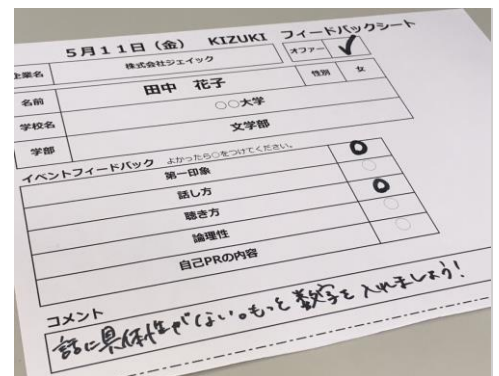 5月11日（金） KIZUKI フィードバックシート
企業名 株式会社ジェイック オファー ✓
名前 田中 花子 性別 女
学校名 ○○大学
学部 文学部
イベントフィードバック よかったら○をつけてください。
第一印象 ○
話し方 ○
聴き方 ○
論理性 ○
自己PRの内容 ○
コメント
話に具体性がない。もっと数字を入れましょう！